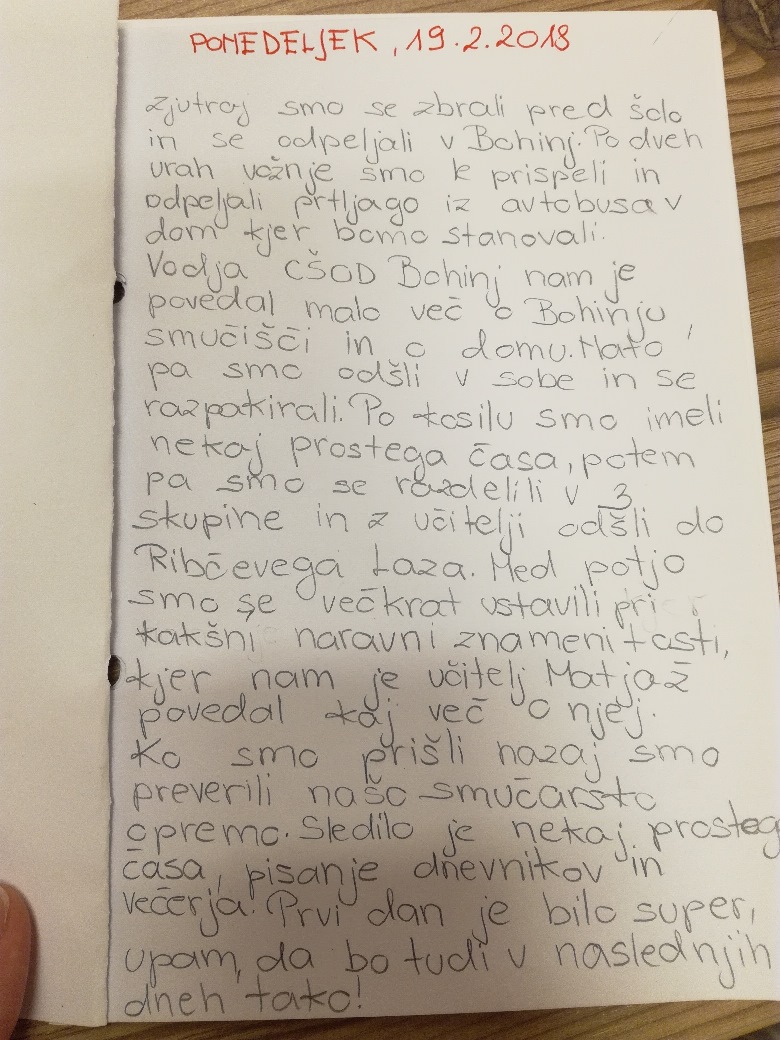 PONEDELJEK, 19.2.2018
Zjutraj smo se zbrali pred šolo
in se odpeljali v Bohinj. Po dveh
urah vožnje smo le prispeli in
odpeljali prtljago iz avtobusa v
dom kjer bomo stanovali.
Vodja CŠOD Bohinj nam je
povedal malo več o Bohinju,
smučišči in o domu. Nato
pa smo odšli v sobe in se
razpakirali. Po kosilu smo imeli
nekaj prostega časa, potem
pa smo se razdelili v 3
skupine in z učitelji odšli do
Ribčevega Laza. Med potjo
smo se večkrat ustavili pri
kakšni naravni znamenitosti,
kjer nam je učitelj Matjaž
povedal kaj več o njej.
Ko smo prišli nazaj smo
preverili našo smučarsko
opremo. Sledilo je nekaj prosteg
časa, pisanje dnevnikov in
večerja. Prvi dan je bilo super,
upam, da bo tudi v naslednjih
dneh tako!